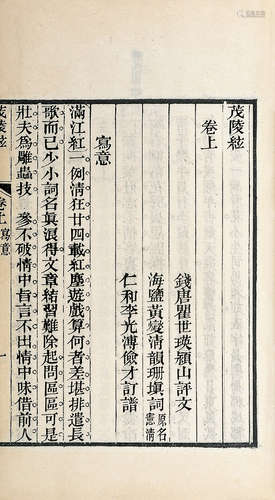 茂陵絃
卷上
錢唐瞿世瑛穎山評文
海鹽黃燮清韻珊填詞原名憲清
仁和李光溥儉才訂譜
寫意
滿江紅一例清狂廿四載紅塵遊戲算何者差堪排遣長
歌而已少小詞名眞浪得文章結習難除起問區區可是
壯夫爲雕蟲技 參不破情中旨言不出情中味借前人
茂陵絃
卷上寫意
一